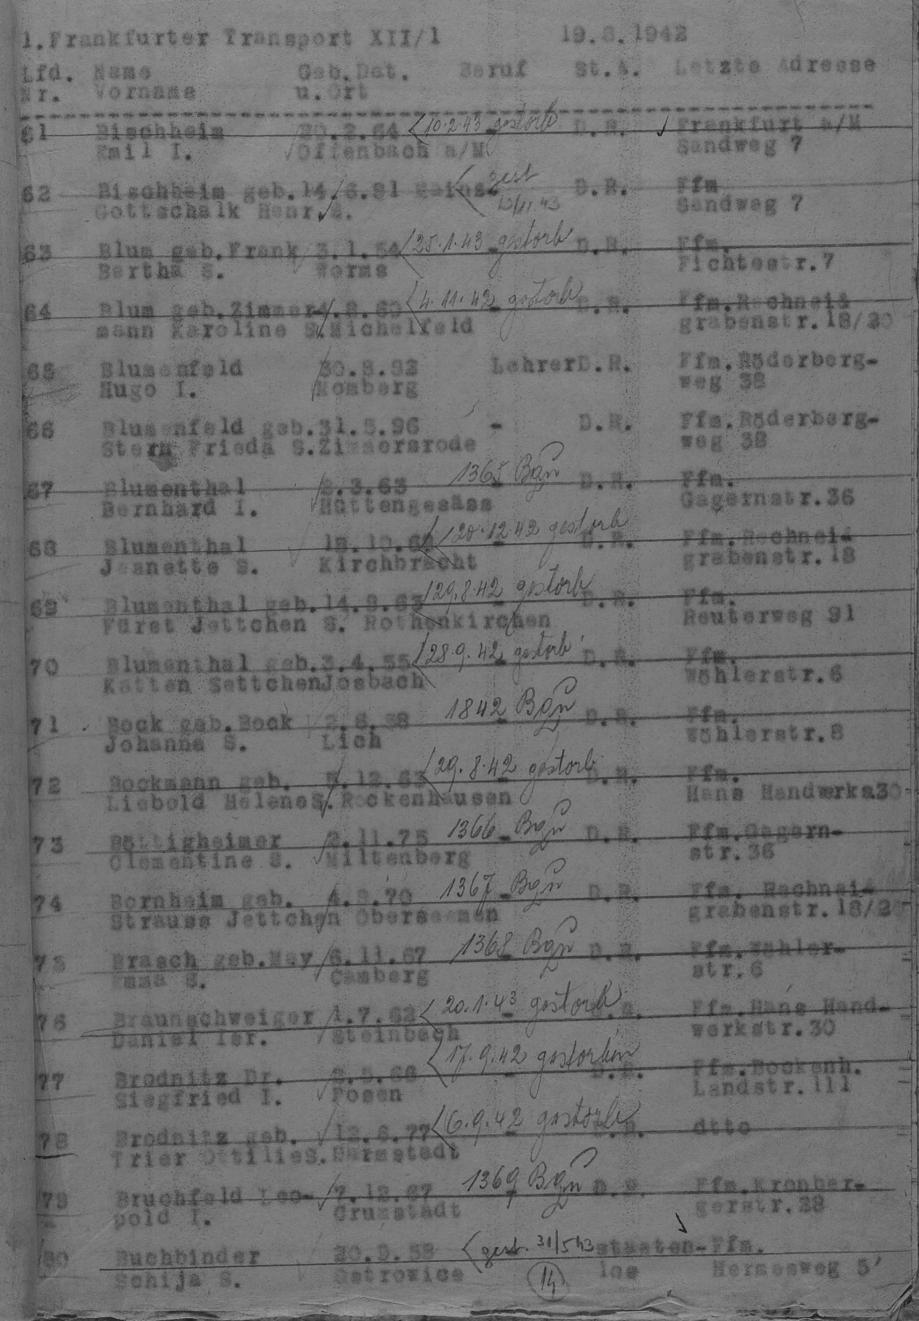 1.Frankfurter Transport XII/1 19.8.1942
Lfd. Name Geb.Dat. Beruf St.A. Letzte Adresse
Nr. Vorname u.Ort
61 Bischheim 20.2.64 10.2.43 gestorb D.R. Frankfurt a/M
Emil I. Offenbach a/M Sandweg 7
62 Bischheim geb. 14.6.81 Mainz gest D.R. Ffm
Gottschalk Henr. S. 13/11 43 Sandweg 7
63 Blum geb.Frank 3.1.54 25.1.43 gestorb D.R. Ffm.
Bertha S. Worms Fichtestr.7
64 Blum geb.Zimmer- .8.60 4.11.42 gestorb D.R. Ffm.Rechnei-
mann Karoline S. Michelfeld grabenstr.18/20
65 Blumenfeld 30.8.92 Lehrer D.R. Ffm.Röderberg-
Hugo I. Momberg weg 38
66 Blumenfeld geb. 31.5.96 - D.R. Ffm.Röderberg-
Stern Frieda S. Zimmersrode weg 38
67 Blumenthal 2.3.63 1365 Bgn D.R. Ffm.
Bernhard I. Hüttengesäss Gagernstr.36
68 Blumenthal 18.10.6 20.12.42 gestorb D.R. Ffm.Rechnei-
Jeanette S. Kirchbracht grabenstr.18
69 Blumenthal geb. 14.9.63 29.8.42 gestorb D.R. Ffm.
Fürst Jettchen S. Rothenkirchen Reuterweg 91
70 Blumenthal geb. 3.4.55 28.9.42 gestorb D.R. Ffm.
Katten Settchen Josbach Wöhlerstr.6
71 Bock geb.Bock 2.6.58 1842 Bgn D.R. Ffm.
Johanna S. Lich Wöhlerstr.8
72 Bockmann geb. .12.63 29.8.42 gestorb D.R. Ffm.
Liebold Helene S. Rockenhausen Hans Handwerks30
73 Böttigheimer 2.11.75 1366 Bgn D.R. Ffm.Gagern-
Clementine S. Miltenberg str.36
74 Bornheim geb. 4.9.70 1367 Bgn D.R. Ffm. Rechnei-
Strauss Jettchen Oberseemen grabenstr.18/20
75 Brasch geb.May 6.11.67 1368 Bgn D.R. Ffm.Wöhler-
Emma S. Camberg str.6
76 Braunschweiger 1.7.62 20.1.43 gestorb D.R. Ffm.Hans Hand-
Daniel Isr. Steinbach werkstr.30
77 Brodnitz Dr. 2.5.66 17.9.42 gestorben D.R. Ffm.Bockenh.
Siegfried I. Posen Landstr.111
78 Brodnitz geb. 12.6.77 6.9.42 gestorb D.R. dtto
Trier Ottilie S. Darmstadt
79 Bruchfeld Leo- 7.12.67 1369 Bgn D.R. Ffm.Kronber-
pold I. Crumstadt gerstr.28
80 Buchbinder 20.9.58 gest. 31/5 43 staaten- Ffm.
Schija S. Ostrowice 14 los Hermesweg 5